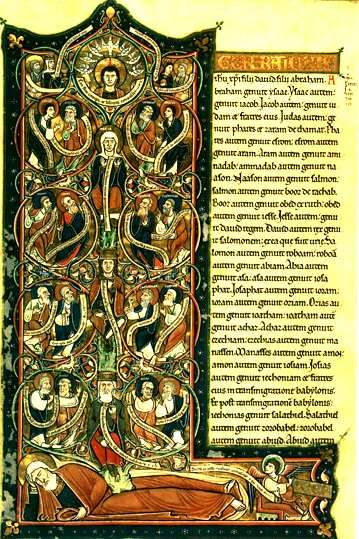 GENERATIONIS
ihu xpi filii dauid filii abraham. A
braham genuit ysaac. Ysaac autem
genuit iacob. Jacob autem genuit iu
dam et fratres eius. Judas autem ge
nuit phares et zaram de thamar. Pha
res autem genuit esrom. esrom autem
genuit aram. Aram autem genuit ami
nadab. aminadab autem genuit na
ason. Naason autem genuit salmon.
salmon autem genuit booz de rachab.
Booz autem genuit obed ex ruth. obed
autem genuit iesse. Jesse autem genu
it dauid regem. Dauid autem rex genu
it salomonem ex ea que fuit urie. Sa
lomon autem genuit roboam. roboā
autem genuit abiam. Abia autem
genuit asa. asa autem genuit iosa
phat. Josaphat autem genuit ioram.
ioram autem genuit oziam. Ozias au
tem genuit ioatham. ioatham autē
genuit achaz. Achaz autem genuit
ezechiam. ezechias autem genuit ma
nassen. Manasses autem genuit amon.
amon autem genuit iosiam. Josias
autem genuit iechoniam et fratres
eius in transmigratione babylonis.
Et post transmigrationē babylonis.
iechonias genuit salathiel. Salathiel
autem genuit zorobabel. zorobabel
autem genuit abiud. Abiud autem